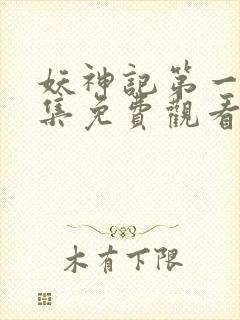 妖神記第一
集免費觀看
木有下限